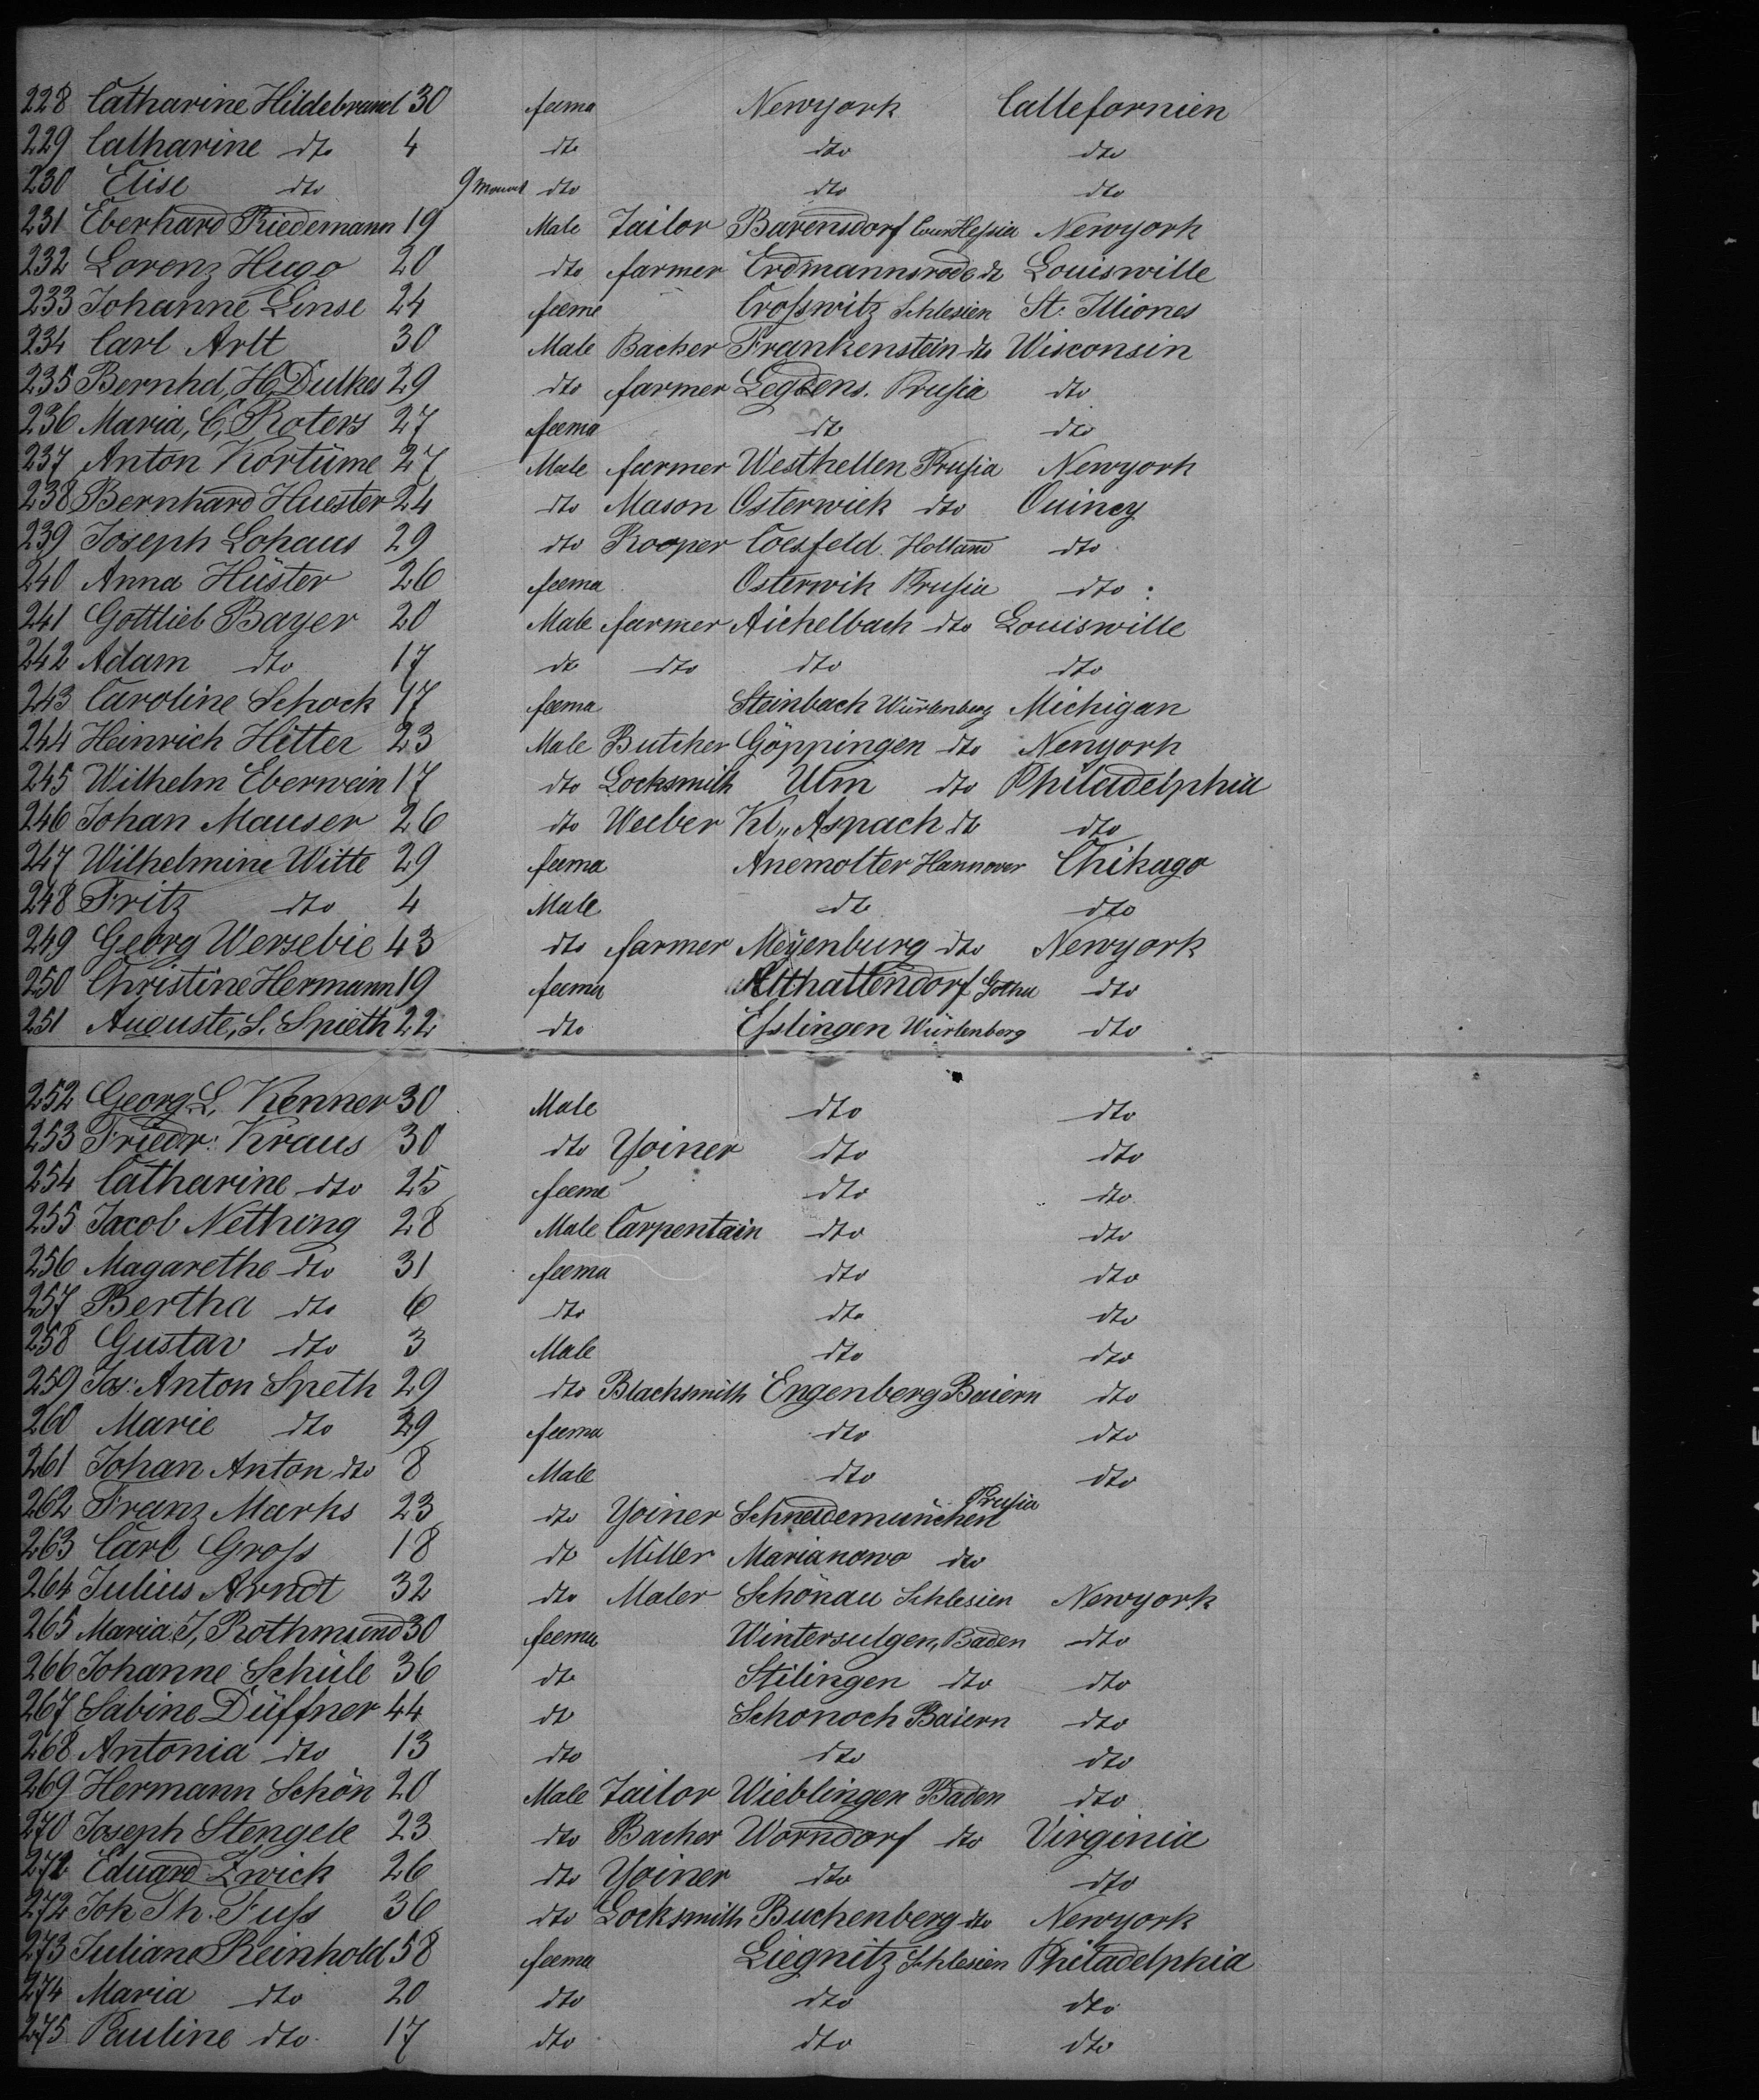 228 Catharine Hildebrand 30 feema Newyork Callefornien
229 Catharine dto 4 dto dto dto
230 Elise dto 9 dto dto dto
231 Eberhard Riedemann 19 Male Tailor Barensdorf CourHessia Newyork
232 Lorenz Hugo 20 dto farmer Erdmannsrode dt Louiswille
233 Johanne Linse 24 feeme Crosswitz Schlesien St. Illiones
234 Carl Arlt 30 Male Backer Frankenstein dto Wisconsin
235 Bernhd, H, Dulkes 29 dto farmer Legdens. Prusia dto
236 Maria, C, Roters 27 feema dt dto
237 Anton Kortüme 27 Male farmer Westhellen Prusia Newyork
238 Bernhard Huester 24 dto Mason Osterwick dto Quincy
239 Joseph Lohaus 29 dto Kooper Coesfeld Holland dto
240 Anna Hüster 26 feema Osterwik Prusia dto
241 Gottlieb Bayer 20 Male farmer Aichelbach dto Louiswille
242 Adam dto 17 dt dto dto dto
243 Caroline Schock 17 feema Steinbach Würtenberg Michigan
244 Heinrich Hitter 23 Male Butcher Göppingen dto Newyork
245 Wilhelm Eberwein 17 dto Locksmith Ulm dto Philadelphia
246 Johan Mauser 26 dto Weeber Kl„ Aspach dt dto
247 Wilhelmine Witte 29 feema Anemolter Hannover Chikago
248 Fritz dto 4 Male dt dto
249 Georg Wersebie 43 dto farmer Meÿenburg dto Newyork
250 Christine Hermann 19 feema Althattendorf Gotha dto
251 Auguste, S. Spieth 22 dto Esslingen Würtenberg dto
252 Georg L. Kenner 30 Male dto dto
253 Friedr: Kraus 30 dto Yoiner dto dto
254 Catharine dto 25 feeme dto dto
255 Jacob Nething 28 Male Carpentain dto dto
256 Magarethe dto 31 feema dto dto
257 Bertha dto 6 dto dto dto
258 Gustav dto 3 Male dto dto
259 Jos: Anton Speth 29 dto Blacksmith Engenberg Baiern dto
260 Marie dto 29 feema dto dto
261 Johan Anton dto 8 Male dto dto
262 Franz Marks 23 dto Yoiner Schneidemünchen Prusia
263 Carl Gross 18 dt Miller Marianowo dto
264 Julius Arndt 32 dto Maler Schönau Schlesien Newyork
265 Maria T, Rothmund 30 feema Wintersulgen, Baden dto
266 Johanne Schüle 36 dt Stilingen dto dto
267 Sabine Düffner 44 dt Schonoch Baiern dto
268 Antonia dto 13 dto dto dto
269 Hermann Schön 20 Male Tailor Wieblingen Baden dto
270 Joseph Stengele 23 dto Backer Worndorf dto Virginia
271 Eduard Zwick 26 dto Yoiner dto dto
272 Joh Th. Fuss 36 dto Locksmith Buchenberg dto Newyork
273 Juliane Reinhold 58 feema Liegnitz Schlesien Philadelphia
274 Maria dto 20 dto dto dto
275 Pauline dto 17 dto dto dto